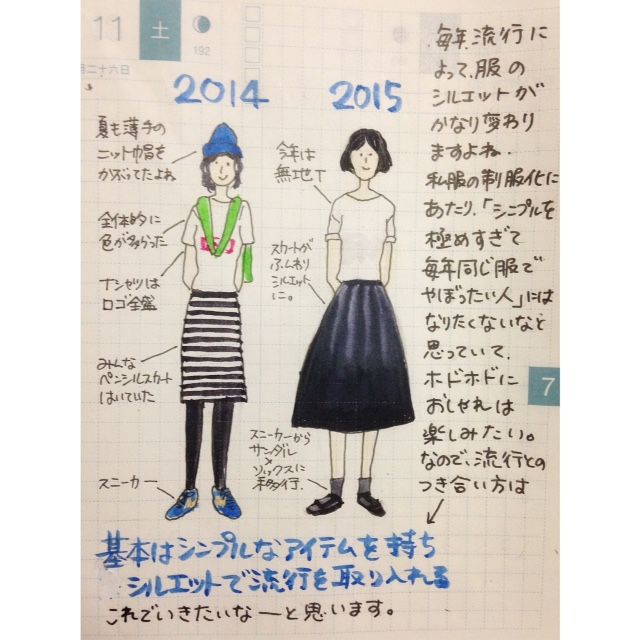 11 土
192
二十六日
2014
2015
夏も薄手の
ニット帽を
かぶってたよね
全体的に
色が多かった
Tシャツは
ロゴ全盛
みんな
ペンシルスカート
はいていた
スニーカー
今年は
無地T
スカートが
ふんわり
シルエット
に。
スニーカーから
サンダル
×
ソックスに
移行.
毎年、流行に
よって、服の
シルエットが
かなり変わり
ますよね.
私服の制服化に
あたり、「シンプルを
極めすぎて
毎年同じ服で
やぼったい人」には
なりたくないなと
思っていて、
ホドホドに
おしゃれは
楽しみたい。
なので、流行との
つき合い方は
7
基本はシンプルなアイテムを持ち
シルエットで流行を取り入れる
これでいきたいなーと思います。